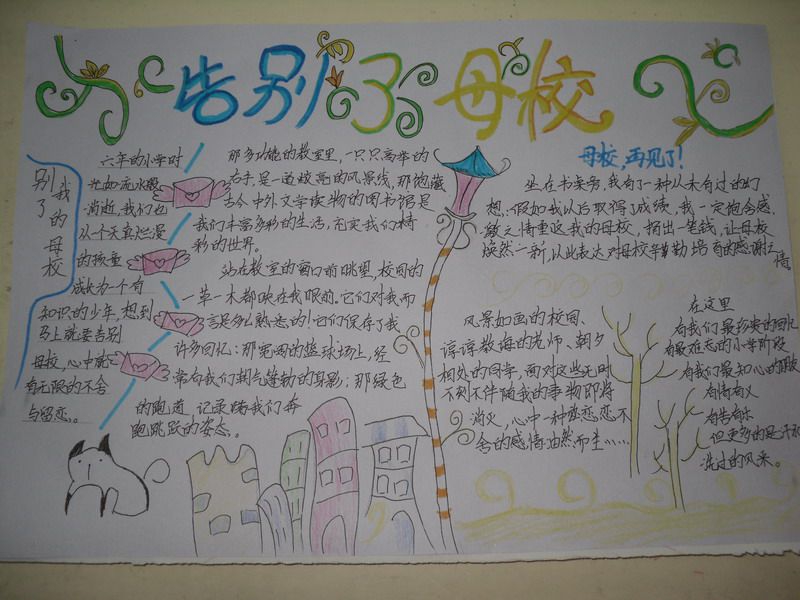 告别了母校
别了我的母校
六年的小学时
光如流水般
消逝,我们也
从个天真烂漫
的孩童
成长为一个有
知识的少年,想到
马上就要告别
母校,心中就
有无限的不舍
与留恋。
那多功能的教室里,一只只高举的
右手,是一道嫽亮的风景线,那饱藏
古今中外文学读物的图书馆是
我们丰富多彩的生活,充实我们精
彩的世界。
站在教室的窗口前眺望,校园的
一草一木都映在我眼前。它们对我而
言是多么熟悉的!它们保存了我
许多回忆:那宽阔的篮球场上,经
常有我们朝气蓬勃的身影;那绿色
的跑道,记录着我们奔
跑跳跃的姿态。
母校,再见了!
坐在书桌旁,我有了一种从未有过的幻
想:假如我以后取得了成绩,我一定饱含感
激之情重返我的母校,捐出一笔钱,让母校
焕然一新,以此表达对母校辛勤培育的感谢之
情
风景如画的校园、
谆谆教诲的老师、朝夕
相处的同学,面对这些无时
不刻不伴随我的事物即将
消失,心中一种依恋恋不
舍的感情油然而生……
在这里
有我们最珍贵的回忆
有最难忘的小学阶段
有我们最知心的朋友
有情有义
有苦有乐
但更多的是汗水
洗过的风采。